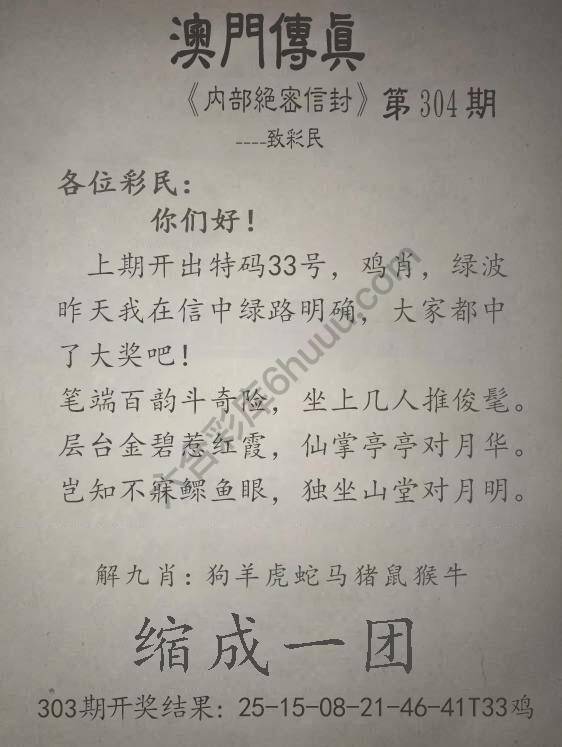 澳門傳眞
《内部絕密信封》第304期
----致彩民
各位彩民：
你们好！
上期开出特码33号，鸡肖，绿波
昨天我在信中绿路明确，大家都中
了大奖吧！
笔端百韵斗奇险，坐上几人推俊髦。
层台金碧惹红霞，仙掌亭亭对月华。
岂知不寐鳏鱼眼，独坐山堂对月明。
六合彩库6huuu.com
解九肖：狗羊虎蛇马猪鼠猴牛
缩成一团
303期开奖结果：25-15-08-21-46-41T33鸡